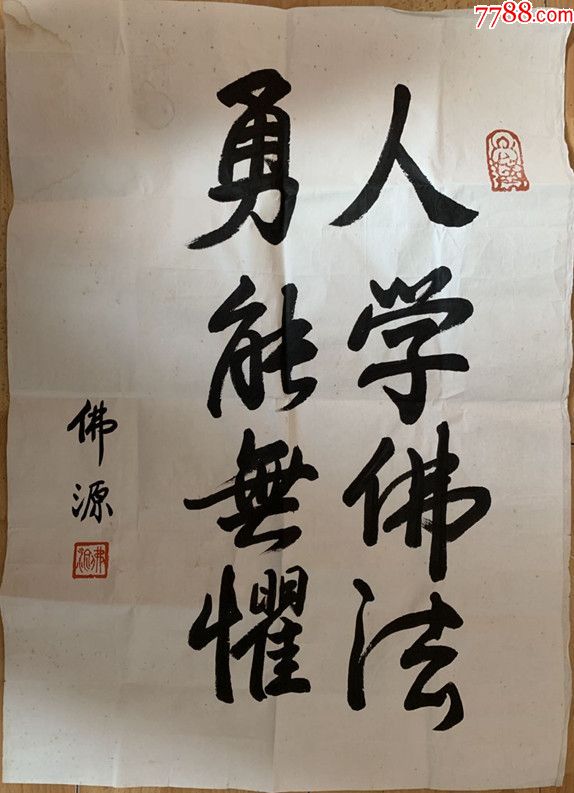 7788.com
人学佛法
勇能無懼
佛源